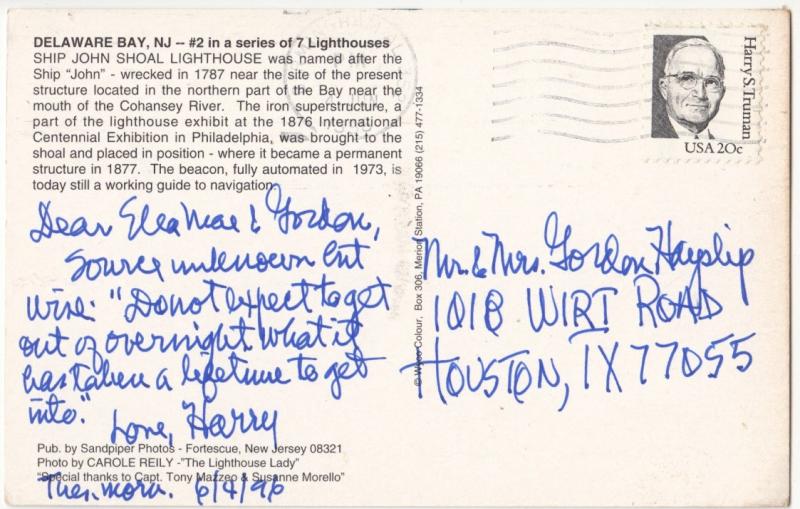 DELAWARE BAY, NJ -- #2 in a series of 7 Lighthouses
SHIP JOHN SHOAL LIGHTHOUSE was named after the
Ship "John" - wrecked in 1787 near the site of the present
structure located in the northern part of the Bay near the
mouth of the Cohansey River. The iron superstructure, a
part of the lighthouse exhibit at the 1876 International
Centennial Exhibition in Philadelphia, was brought to the
shoal and placed in position - where it became a permanent
structure in 1877. The beacon, fully automated in 1973, is
today still a working guide to navigation.
Dear Elea Mae & Gordon,
Source unknown but
wise: "Do not expect to get
out of overnight what it
has taken a lifetime to get
into."
Love, Harry
Pub. by Sandpiper Photos - Fortescue, New Jersey 08321
Photo by CAROLE REILY -"The Lighthouse Lady"
"Special thanks to Capt. Tony Mazzeo & Susanne Morello"
Tues. morn. 6/4/96
Box 306, Merion Station, PA 19066 (215) 477-1334
Harry S. Truman
USA 20c
Mr. & Mrs. Gordon Hayslip
1018 WIRT ROAD
HOUSTON, TX 77055